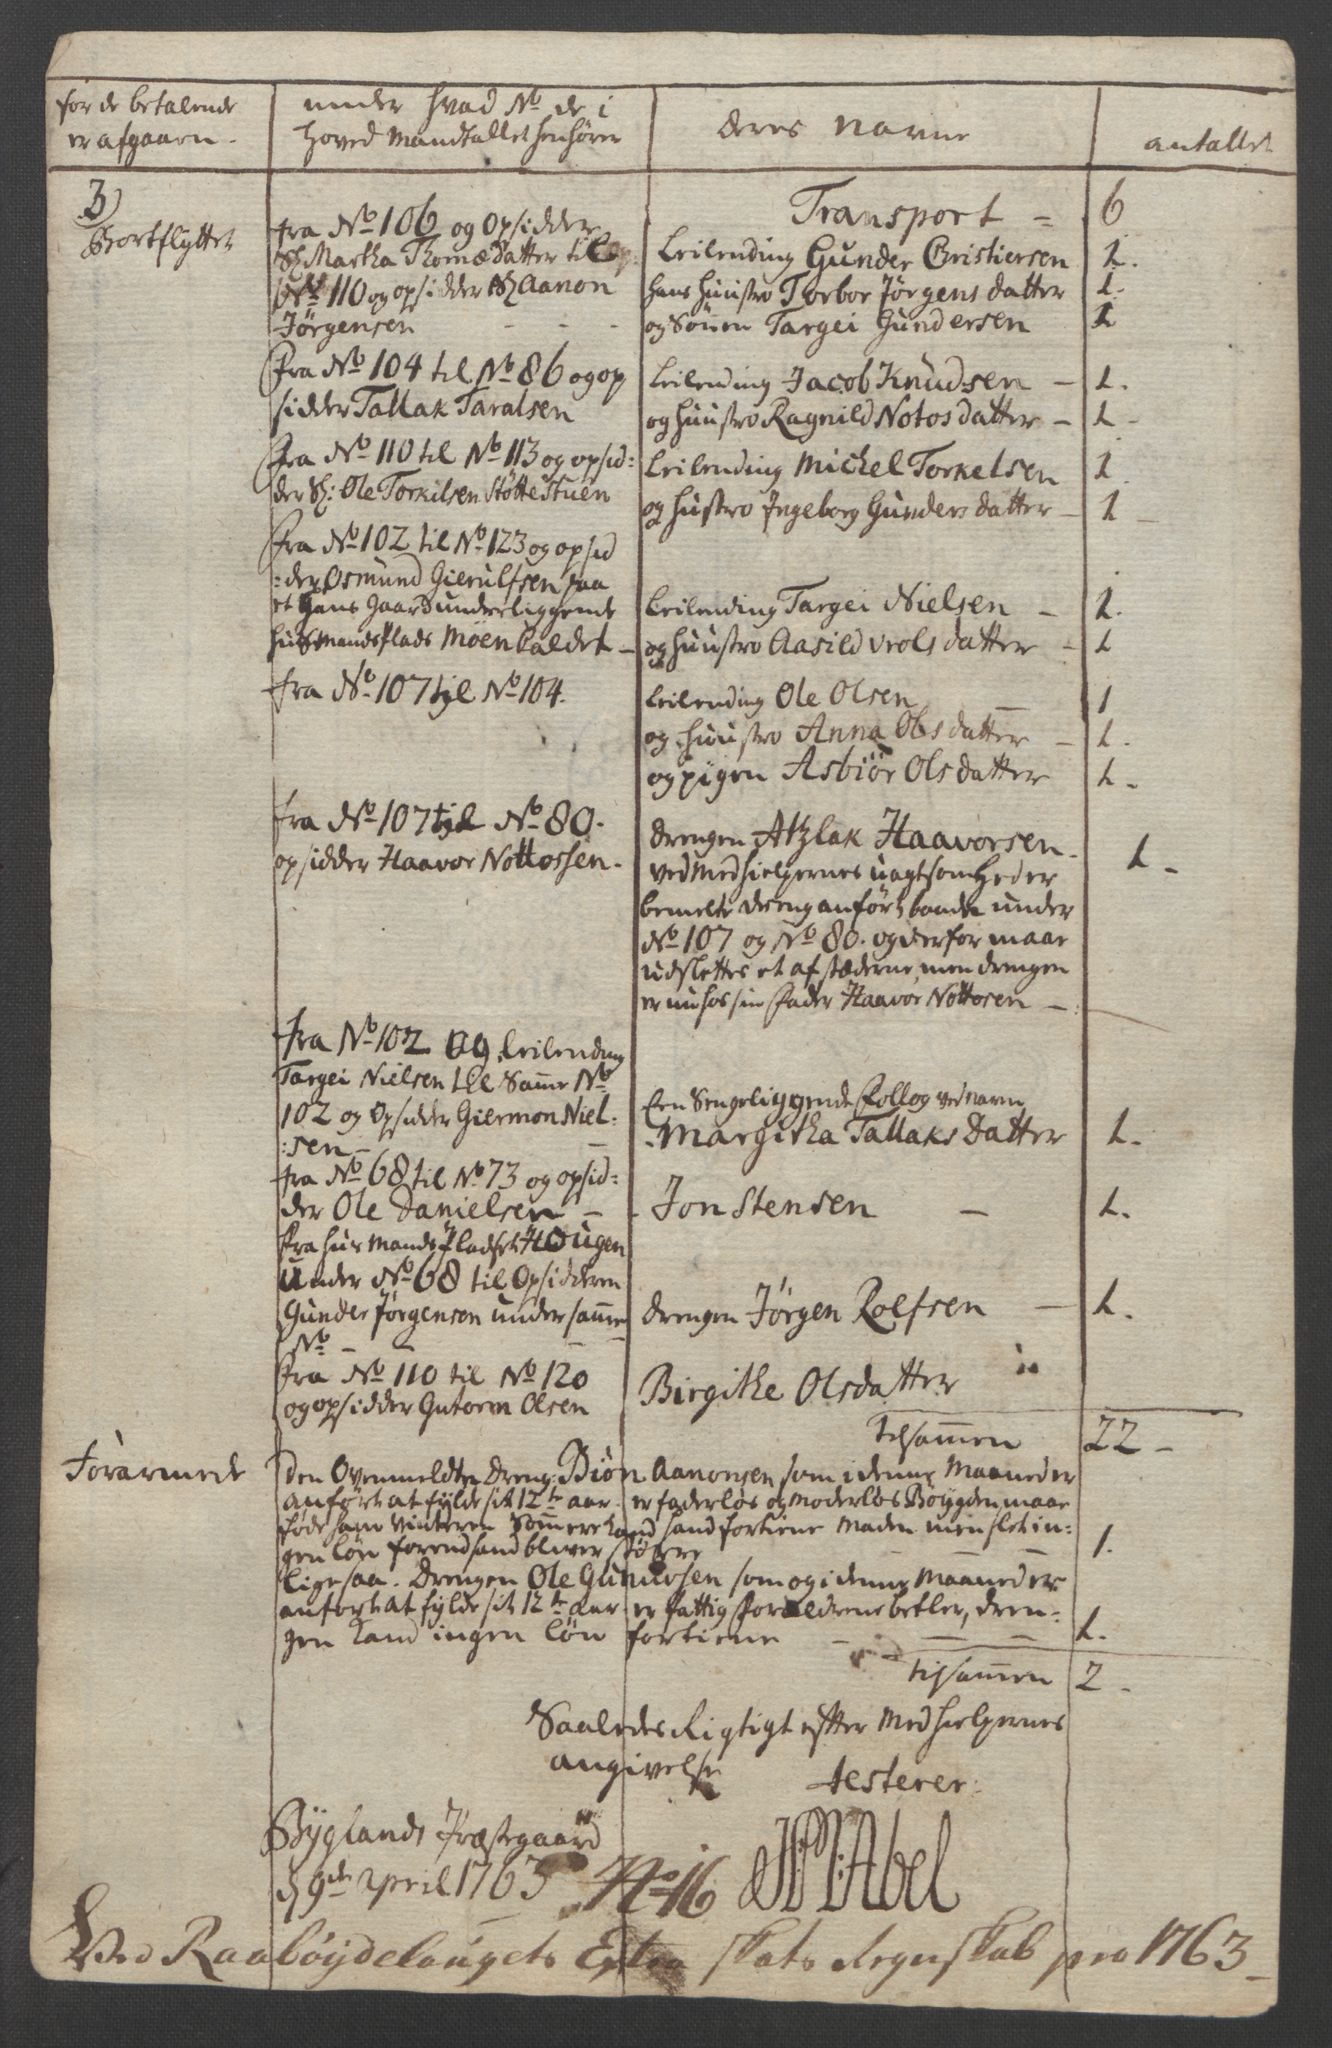 for de betalende
er afgaaen.
under hvad No de i
Hoved Mandtallet henhører
deres Navne
antallet
3)
Bortflyttet
Transport - 6
fra No 106 og Opsidder
Sl: Martha Thomædatter til
No 110 og opsidder Sl: Aanon
Jørgensen - - -
Leilending Gunder Christiersen 1.
hans huustro Torbor Jørgens datter 1.
og Sönen Targei Gundersen 1
Fra No 104 til No 86 og op
sidder Tallak Taralsen
Leilending Jacob Knudsen - 1.
og huustro Ragnild Notos datter - 1 -
Fra No 110 til No 113 og opsid:
der Sl: Ole Torkilsen Støttestuen
Leilending Michel Torkelsen 1
og hustro Ingeborg Gunders datter - 1 -
Fra No 102 til No 123 og opsid
:der Osmund Gierulfsen paa
et hans Gaard underliggende
huusmands Plads Moen kaldet -
Leilending Targei Nielsen - 1.
og huustro Aasild vrols datter - 1
fra No 107 til No 104.
Leilending Ole Olsen - 1
og huustro Anna Olsdatter - 1.
og pigen Asbiør Olsdatter 1 -
fra No 107 til No 80.
opsidder Haavor Nottossen -
drengen Atzlak Haavorsen - 1 -
ved Medhielpernes uagtsomheder
bemelte dreng anført baade under
No 107 og No 80. og derfor maae
udslettes et af stæderne, men drengen
er nu hos sin Fader Haavor Nottosen -
fra No 102 og Leilending
Targei Nielsen til Samme No
102 og Opsidder Giermon Niel-
:sen - -
Een Sengeliggende Follog ved navn
Margitha Tallaks Datter 1 -
fra No 68 til No 73 og opsid:
der Ole Danielsen -
Jon Stensen - 1.
Fra huusmands Pladset Hougen
under No 68 til Opsidderen
Gunder Jørgensen under samme
No - - -
drengen Jørgen Roefsen - 1.
Fra No 110 til No 120
og opsidder Gutorm Olsen
Birgithe Olsdatter
tilsammen 22 -
Forarmede
den Ovenmeldte Dreng Biøn Aanonsen som i denne Maaned er
anført at fylde sit 12te aar er faderløs og Moderløs Bøygden maae
føde ham Vinteren Sommeren kand hand fortiene Maden men slet in-
gen løn forend hand bliver større - - 1.
Lige saa. Drengen Ole Gunuvsen som og i denne Maaned er
anført at fylde sit 12te aar er fattig Forældrene betler, dren-
gen kand ingen løn fortiene - - - 1.
tilsammen 2 -
Saaledes Rigtigt efter Medhielpernes
angivelse
testerer:
Byglands Præstegaard
d 9de April 1763
No 16
Abel
Ved Raabøydelaugets Extra Skats Regnskab pro 1763 -